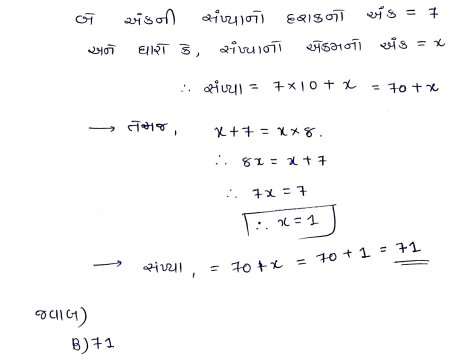 બે અંકની સંખ્યાનો દશકનો અંક = 7
અને ધારો કે, સંખ્યાનો એકમનો અંક = x
∴ સંખ્યા = 7×10 + x = 70+x
→ તેમજ, x+7 = x×8.
∴ 8x = x+7
∴ 7x = 7
∴ x = 1
→ સંખ્યા, = 70+x = 70+1 = 71
જવાબ)
B) 71